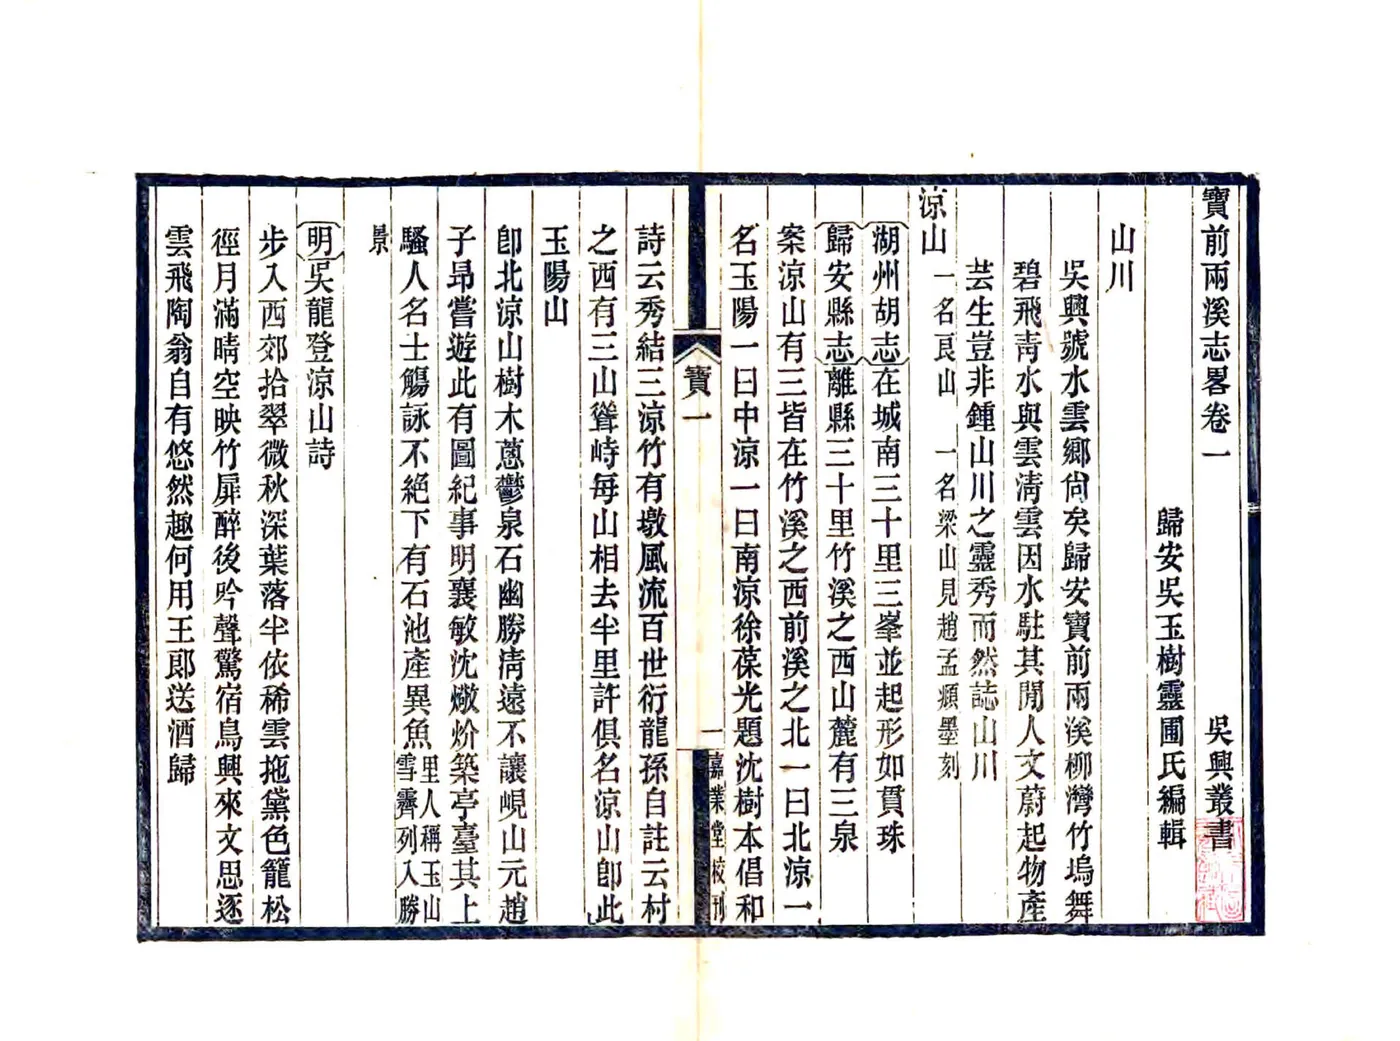 寶前兩溪志畧卷一　吳興叢書
歸安吳玉樹靈圃氏編輯
山川
吳興號水雲鄉尙矣歸安寶前兩溪柳灣竹塢舞
碧飛靑水與雲淸雲因水駐其閒人文蔚起物產
芸生豈非鍾山川之靈秀而然誌山川
涼山一名艮山　一名梁山見趙孟頫墨刻
湖州胡志在城南三十里三峯並起形如貫珠
歸安縣志離縣三十里竹溪之西山麓有三泉
案涼山有三皆在竹溪之西前溪之北一曰北涼一
名玉陽一曰中涼一曰南涼徐葆光題沈樹本倡和
寶一
一
嘉業堂校刊
詩云秀結三涼竹有墩風流百世衍龍孫自註云村
之西有三山聳峙每山相去半里許俱名涼山卽此
玉陽山
卽北涼山樹木蔥鬱泉石幽勝淸遠不讓峴山元趙
子昻嘗遊此有圖紀事明襄敏沈燉炌築亭臺其上
騷人名士觴詠不絕下有石池產異魚里人稱玉山雪霽列入勝
景
明吳龍登涼山詩
步入西郊拾翠微秋深葉落半依稀雲拖黛色籠松
徑月滿晴空映竹扉醉後吟聲驚宿鳥興來文思逐
雲飛陶翁自有悠然趣何用王郞送酒歸